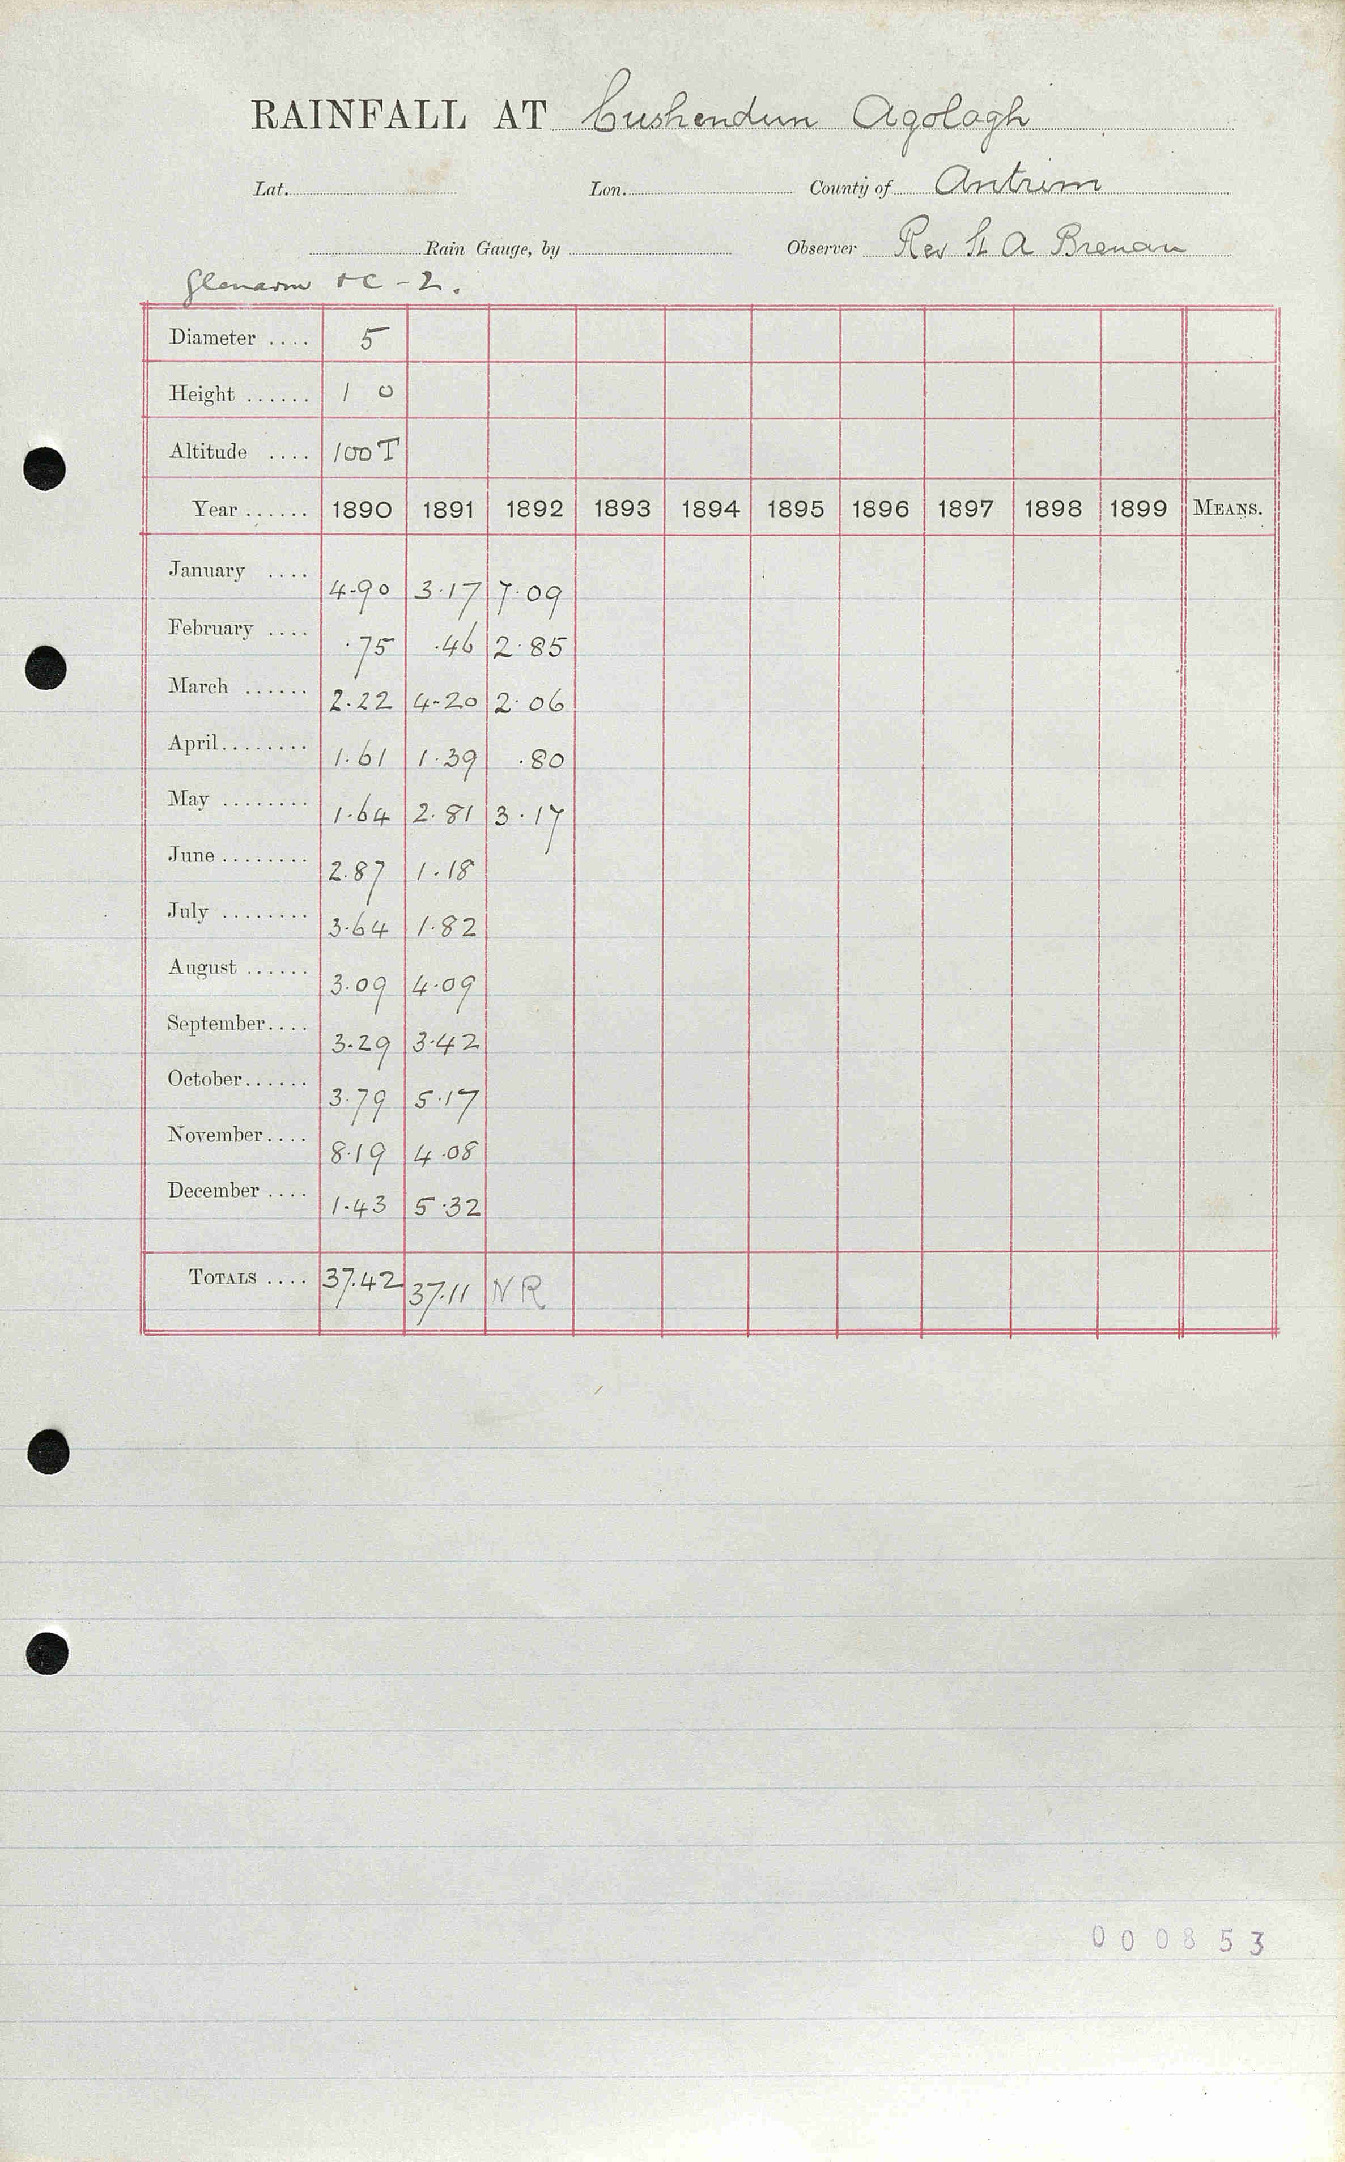 RAINFALL AT Cushendun Agolagh
Lat. Lon. County of Antrim
Rain Gauge, by Observer Rev S A Brenan
Glenarm +C - 2.
Diameter .... 5
Height ...... 1 0
Altitude .... 100T
Year ...... 1890 1891 1892 1893 1894 1895 1896 1897 1898 1899 MEANS.
January .... 4.90 3.17 7.09
February .... .75 .46 2.85
March ...... 2.22 4.20 2.06
April........ 1.61 1.39 .80
May ........ 1.64 2.81 3.17
June ........ 2.87 1.18
July ........ 3.64 1.82
August ...... 3.09 4.09
September.... 3.29 3.42
October...... 3.79 5.17
November.... 8.19 4.08
December .... 1.43 5.32
TOTALS .... 37.42 37.11 NR
000853